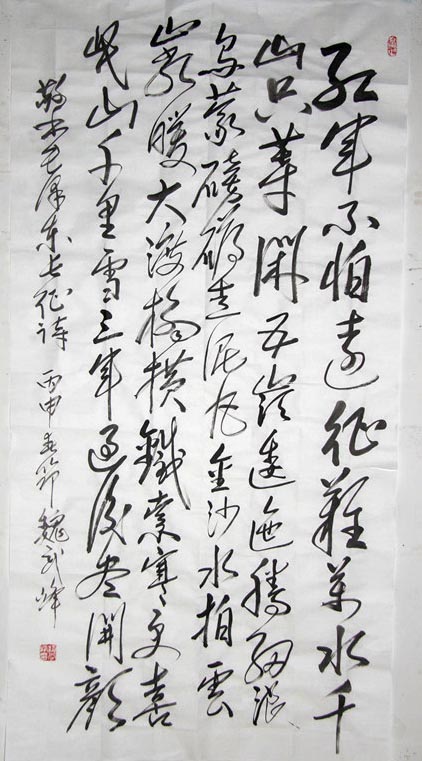 红军不怕远征难万水千
山只等闲五岭逶迤腾细浪
乌蒙磅礴走泥丸金沙水拍云
崖暖大渡桥横铁索寒更喜
岷山千里雪三军过后尽开颜
敬书毛泽东长征诗 丙申春节 魏武峰